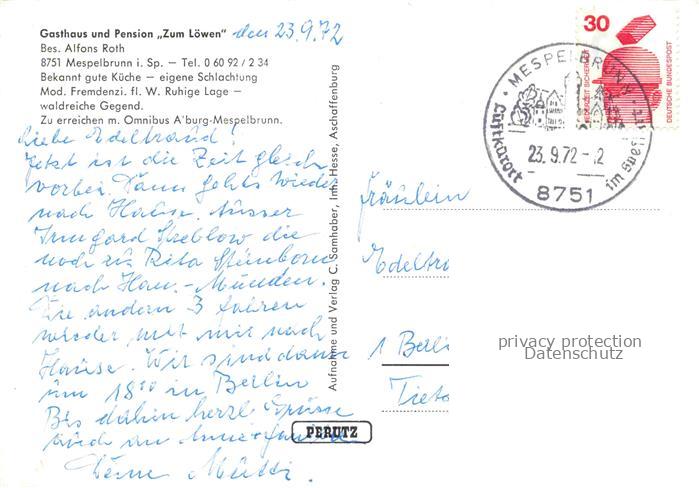 Gasthaus und Pension „Zum Löwen" den 23.9.72
Bes. Alfons Roth
8751 Mespelbrunn i. Sp. — Tel. 0 60 92 / 2 34
Bekannt gute Küche — eigene Schlachtung
Mod. Fremdenzi. fl. W. Ruhige Lage —
waldreiche Gegend.
Zu erreichen m. Omnibus A'burg-Mespelbrunn.
Liebe Edeltraud!
Jetzt ist die Zeit gleich
vorbei. Dann gehts wieder
nach Hause. Ausser
Irmgard die
noch zu Rita
nach Han.-Münden.
Die andern 3 fahren
wieder mit mir nach
Hause. Wir sind dann
um 18 in Berlin
Bis dahin herzl. Grüsse
auch an
Deine Mutti.
Aufnahme und Verlag C. Samhaber, Inh. Hesse, Aschaffenburg
PERUTZ
30
JEDERZEIT SICHERHEIT
DEUTSCHE BUNDESPOST
MESPELBRUNN
Luftkurort
im Spessart
23.9.72-12
8751
Fräulein
Edeltra
1 Berli
Tieto
privacy protection
Datenschutz